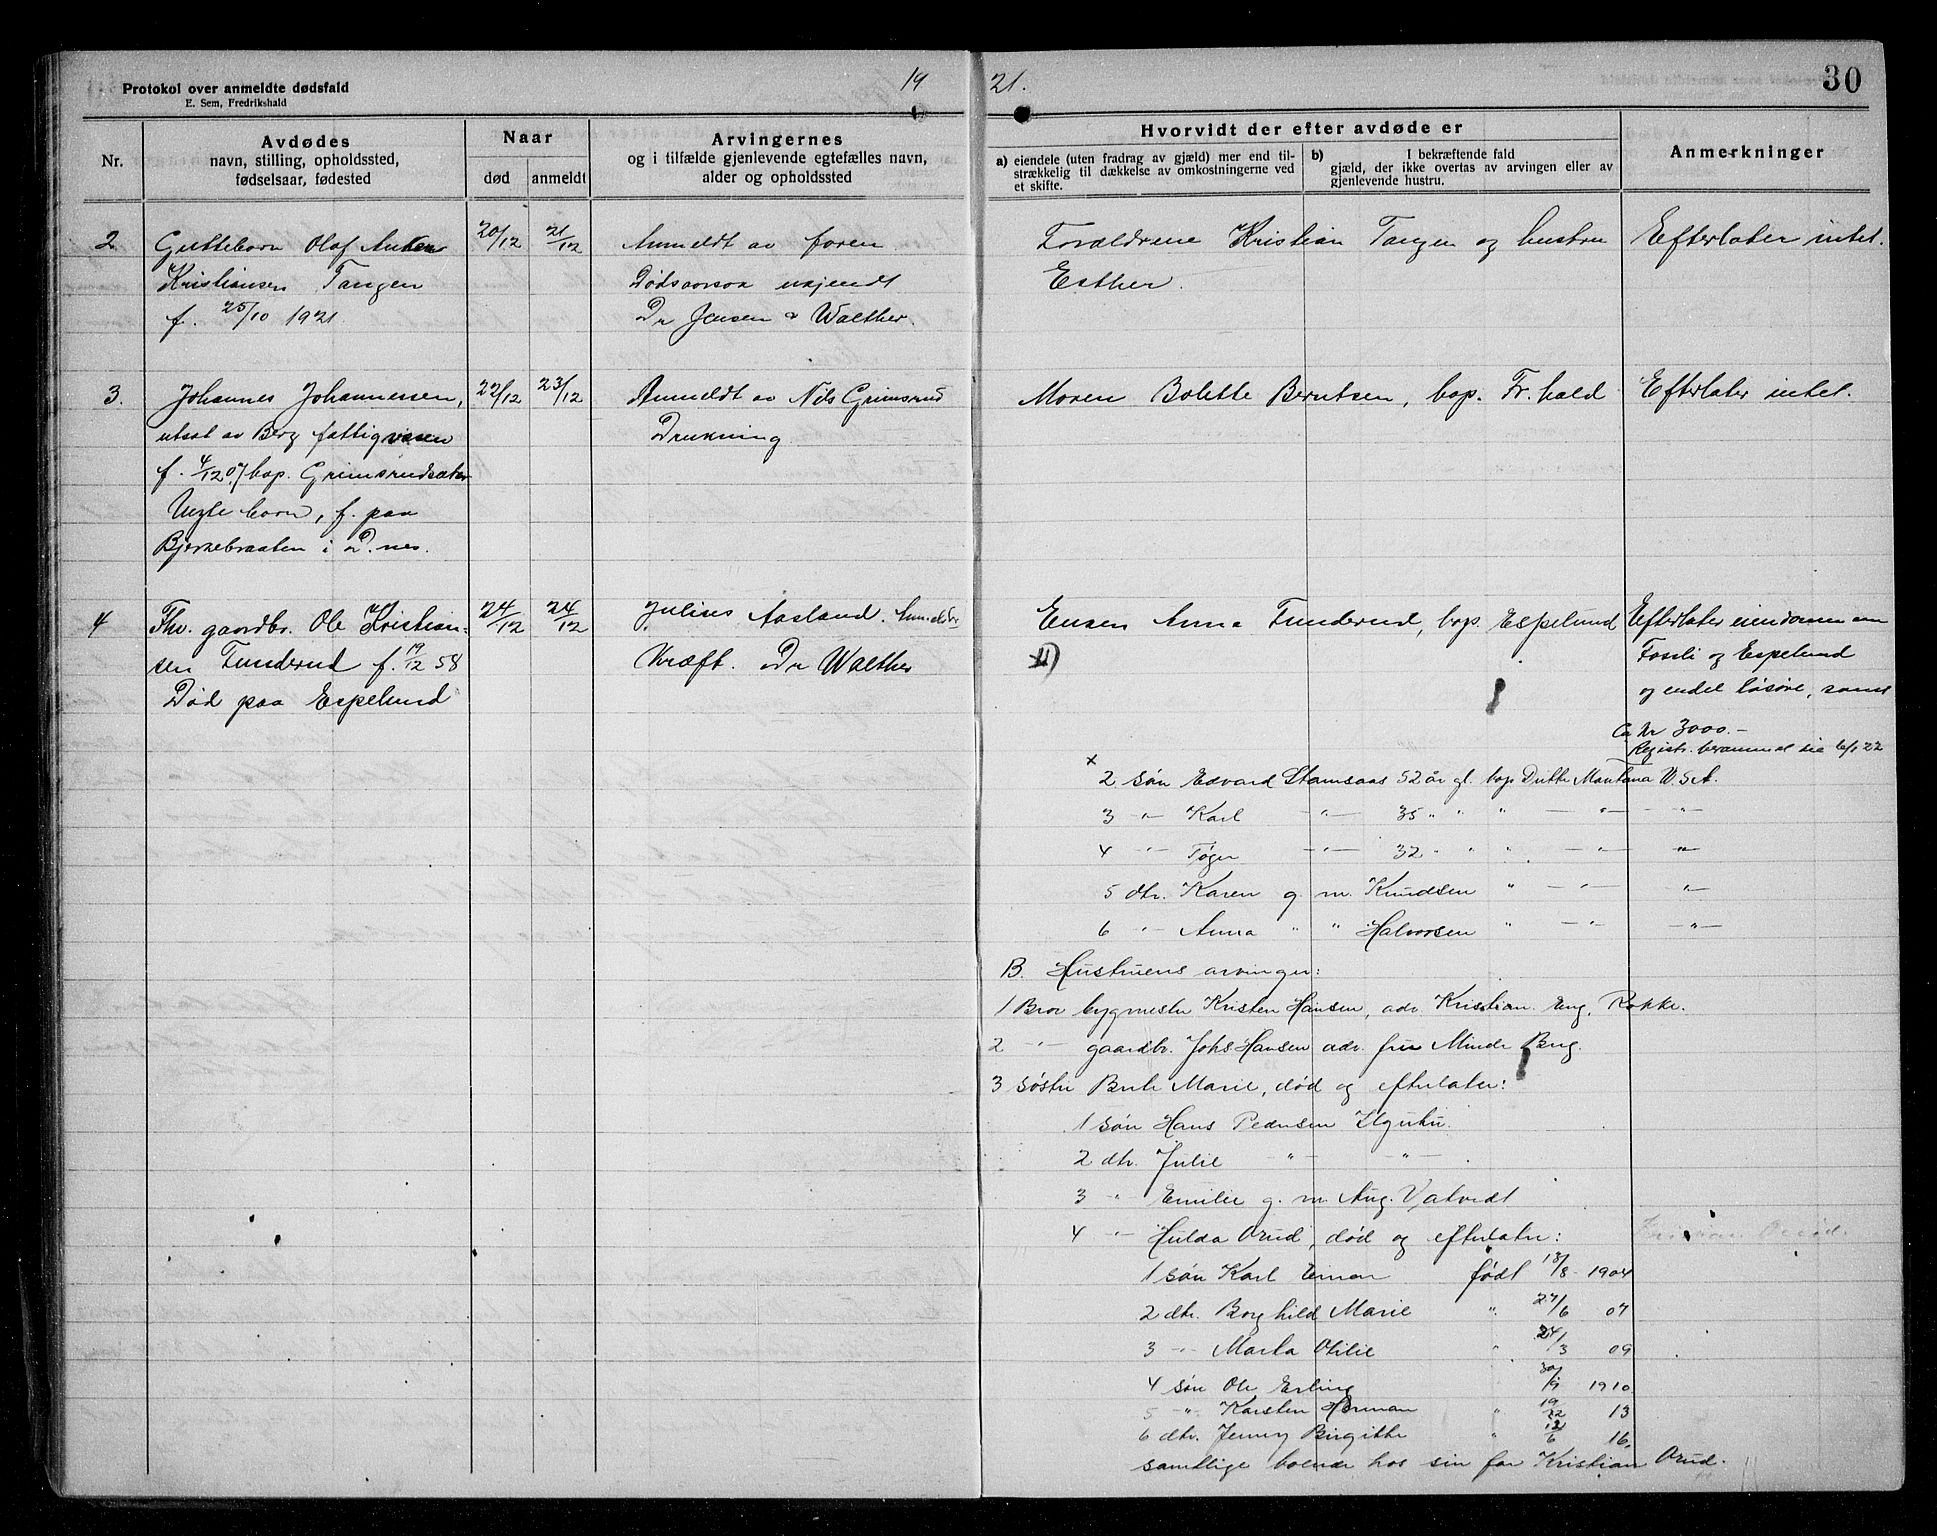 Protokol over anmeldte dødsfald
E. Sem, Fredrikshald
19
21.
30
Nr.
Avdødes
navn, stilling, opholdssted,
fødselsaar, fødested
Naar
død
anmeldt
Arvingernes
og i tilfælde gjenlevende egtefælles navn,
alder og opholdssted
Hvorvidt der efter avdøde er
a) eiendele (uten fradrag av gjæld) mer end til-
strækkelig til dækkelse av omkostningerne ved
et skifte.
b) I bekræftende fald
gjæld, der ikke overtas av arvingen eller av
gjenlevende hustru.
Anmerkninger
2
Guttebarn Olaf Anton
Kristiansen Tangen
f. 25/10 1921.
20/12
21/12
Anmeldt av faren
Dødsaarsak ukjendt
Dr Jensen & Walther.
Forældrene Kristian Tangen og hustru
Esther.
Efterlater intet.
3.
Johannes Johannessen,
utsat av Berg fattigvæsen
f. 4/12 07 bop. Grimsrudsæter
Uegte barn, f. paa
Bjerkebraaten i D.nes.
22/12
23/12
Anmeldt av Nils Grimsrud
Drukning
Moren Bolette Berntsen, bop. Fr.hald
Efterlater intet.
4
Fhv. gaardbr. Ole Kristian-
sen Tunderud f. 19/12 58
Død paa Espelund
24/12
24/12
Julius Aasland.
Kræft. Dr Walther
Enken Anna Tunderud, bop. Espelund
Efterlater eiendommen
Fosli og Espelund
og endel løsøre, samt
Ca kr 3000.-
Registr. berammet 22
x
2 søn Edvard Stamsaas 52 år gl. bop Butte Montana U.S.A.
3 -"- Karl -"- 35 " " " -"- -"-
4 -"- Tøger -"- 32 " " " -"- -"-
5 dtr. Karen g. m. Knudsen " -"- -"-
6 -"- Anna " " Halvorsen " -"- -"-
B. Hustruens arvinger:
1 Bror bygmester Kristen Hansen, adr. Kristian. Eng, Rokke.
2 -"- gaardbr. Johs Hansen adr. fru Minde Berg.
3 søster Berte Marie, død og efterlater:
1 søn Hans Pedersen
2 dtr. Julie -"- -"-
3 -"- Emilie g. m. Aug. Vatvedt
4 -"- Hulda Orud, død og efterlater:
1 søn Karl Einar født 18/8 1904
2 dtr. Borghild Marie " 27/6 07
3 -"- Marta Otilie " 24/3 09
4 søn Ole Erling 30/9 1910
5 -"- Karsten Herman " 13
6 dtr. Jenny Birgitte " 12/6 16.
samtlige boende hos sin far Kristian Orud.